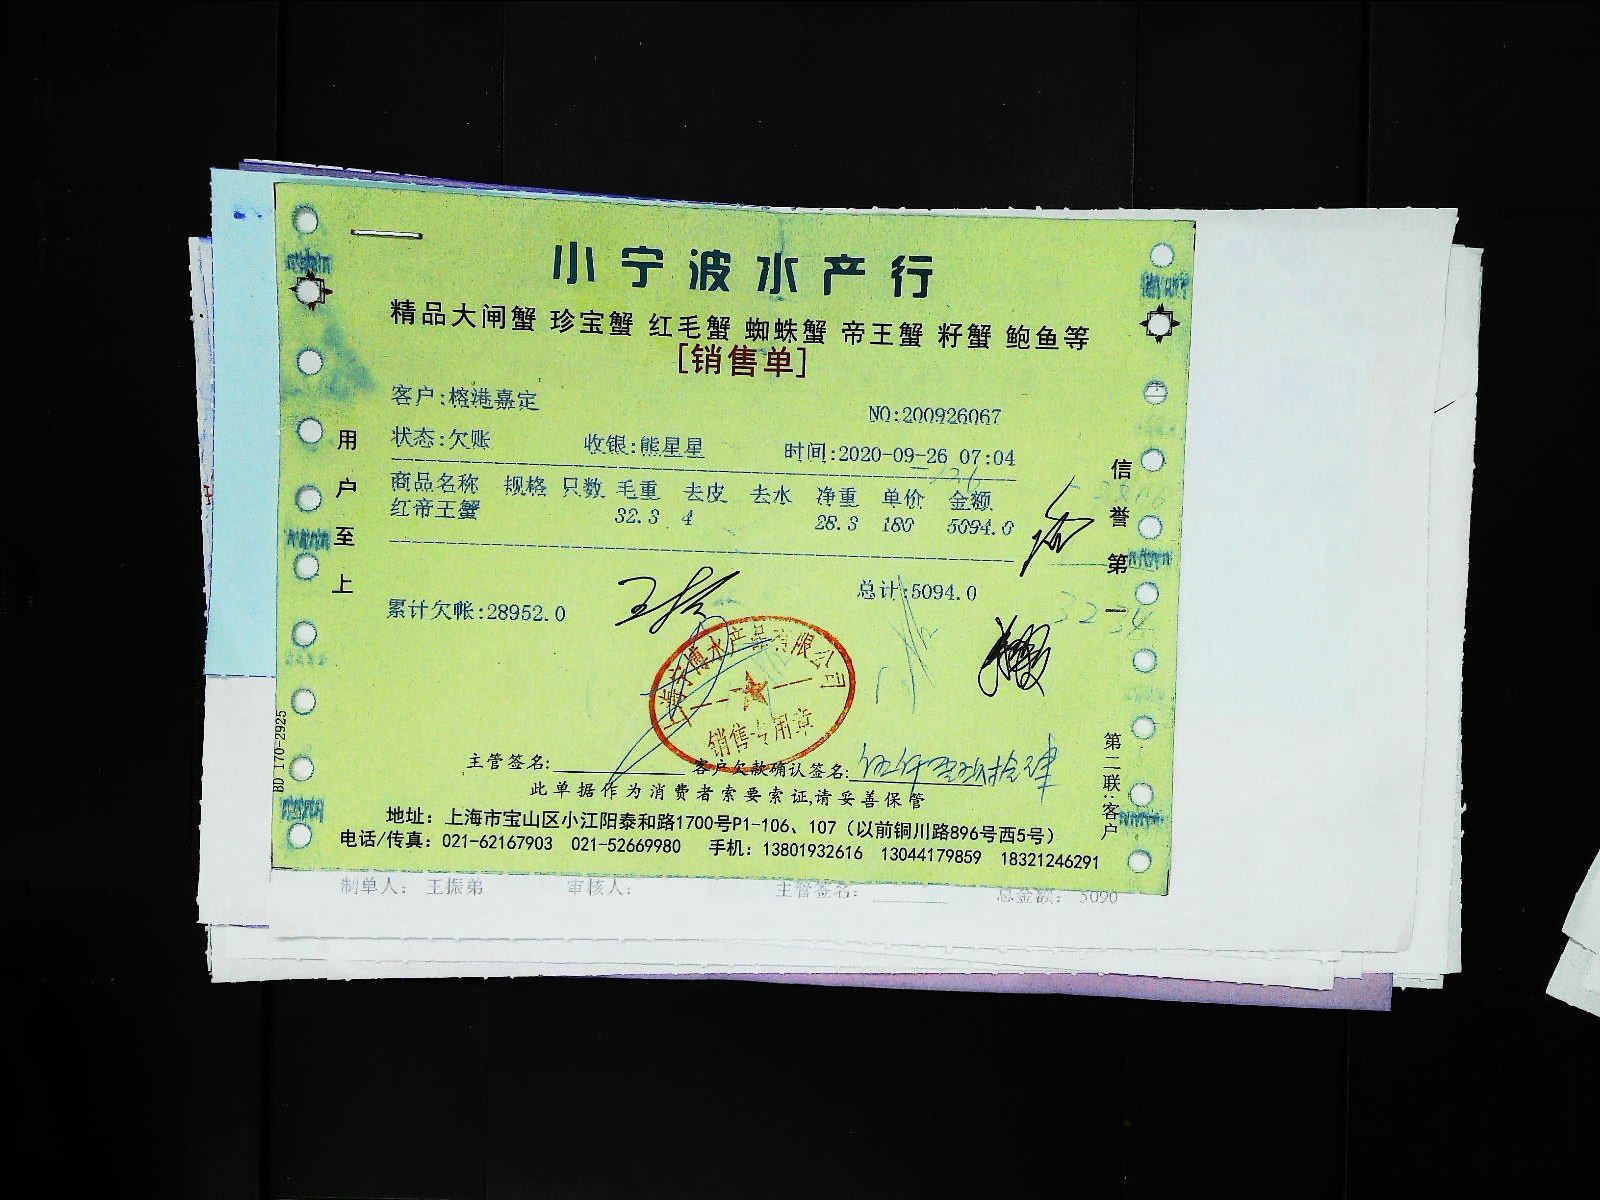 小宁波水产行
精品大闸蟹 珍宝蟹 红毛蟹 蜘蛛蟹 帝王蟹 籽蟹 鲍鱼等
[销售单]
客户:榕港嘉定
NO:200926067
状态:欠账 收银:熊星星 时间:2020-09-26 07:04
商品名称 规格 只数 毛重 去皮 去水 净重 单价 金额
红帝王蟹 32.3 4 28.3 180 5094.0
总计:5094.0
累计欠帐:28952.0
上海宁博水产品有限公司
销售专用章
主管签名: 客户欠款确认签名:
此单据作为消费者索要索证,请妥善保管
地址：上海市宝山区小江阳泰和路1700号P1-106、107（以前铜川路896号西5号）
电话/传真：021-62167903 021-52669980 手机：13801932616 13044179859 18321246291
用户至上
信誉第一
第二联:客户
BD 170-2925
制单人： 王振弟 审核人： 主管签名： 总金额： 5090